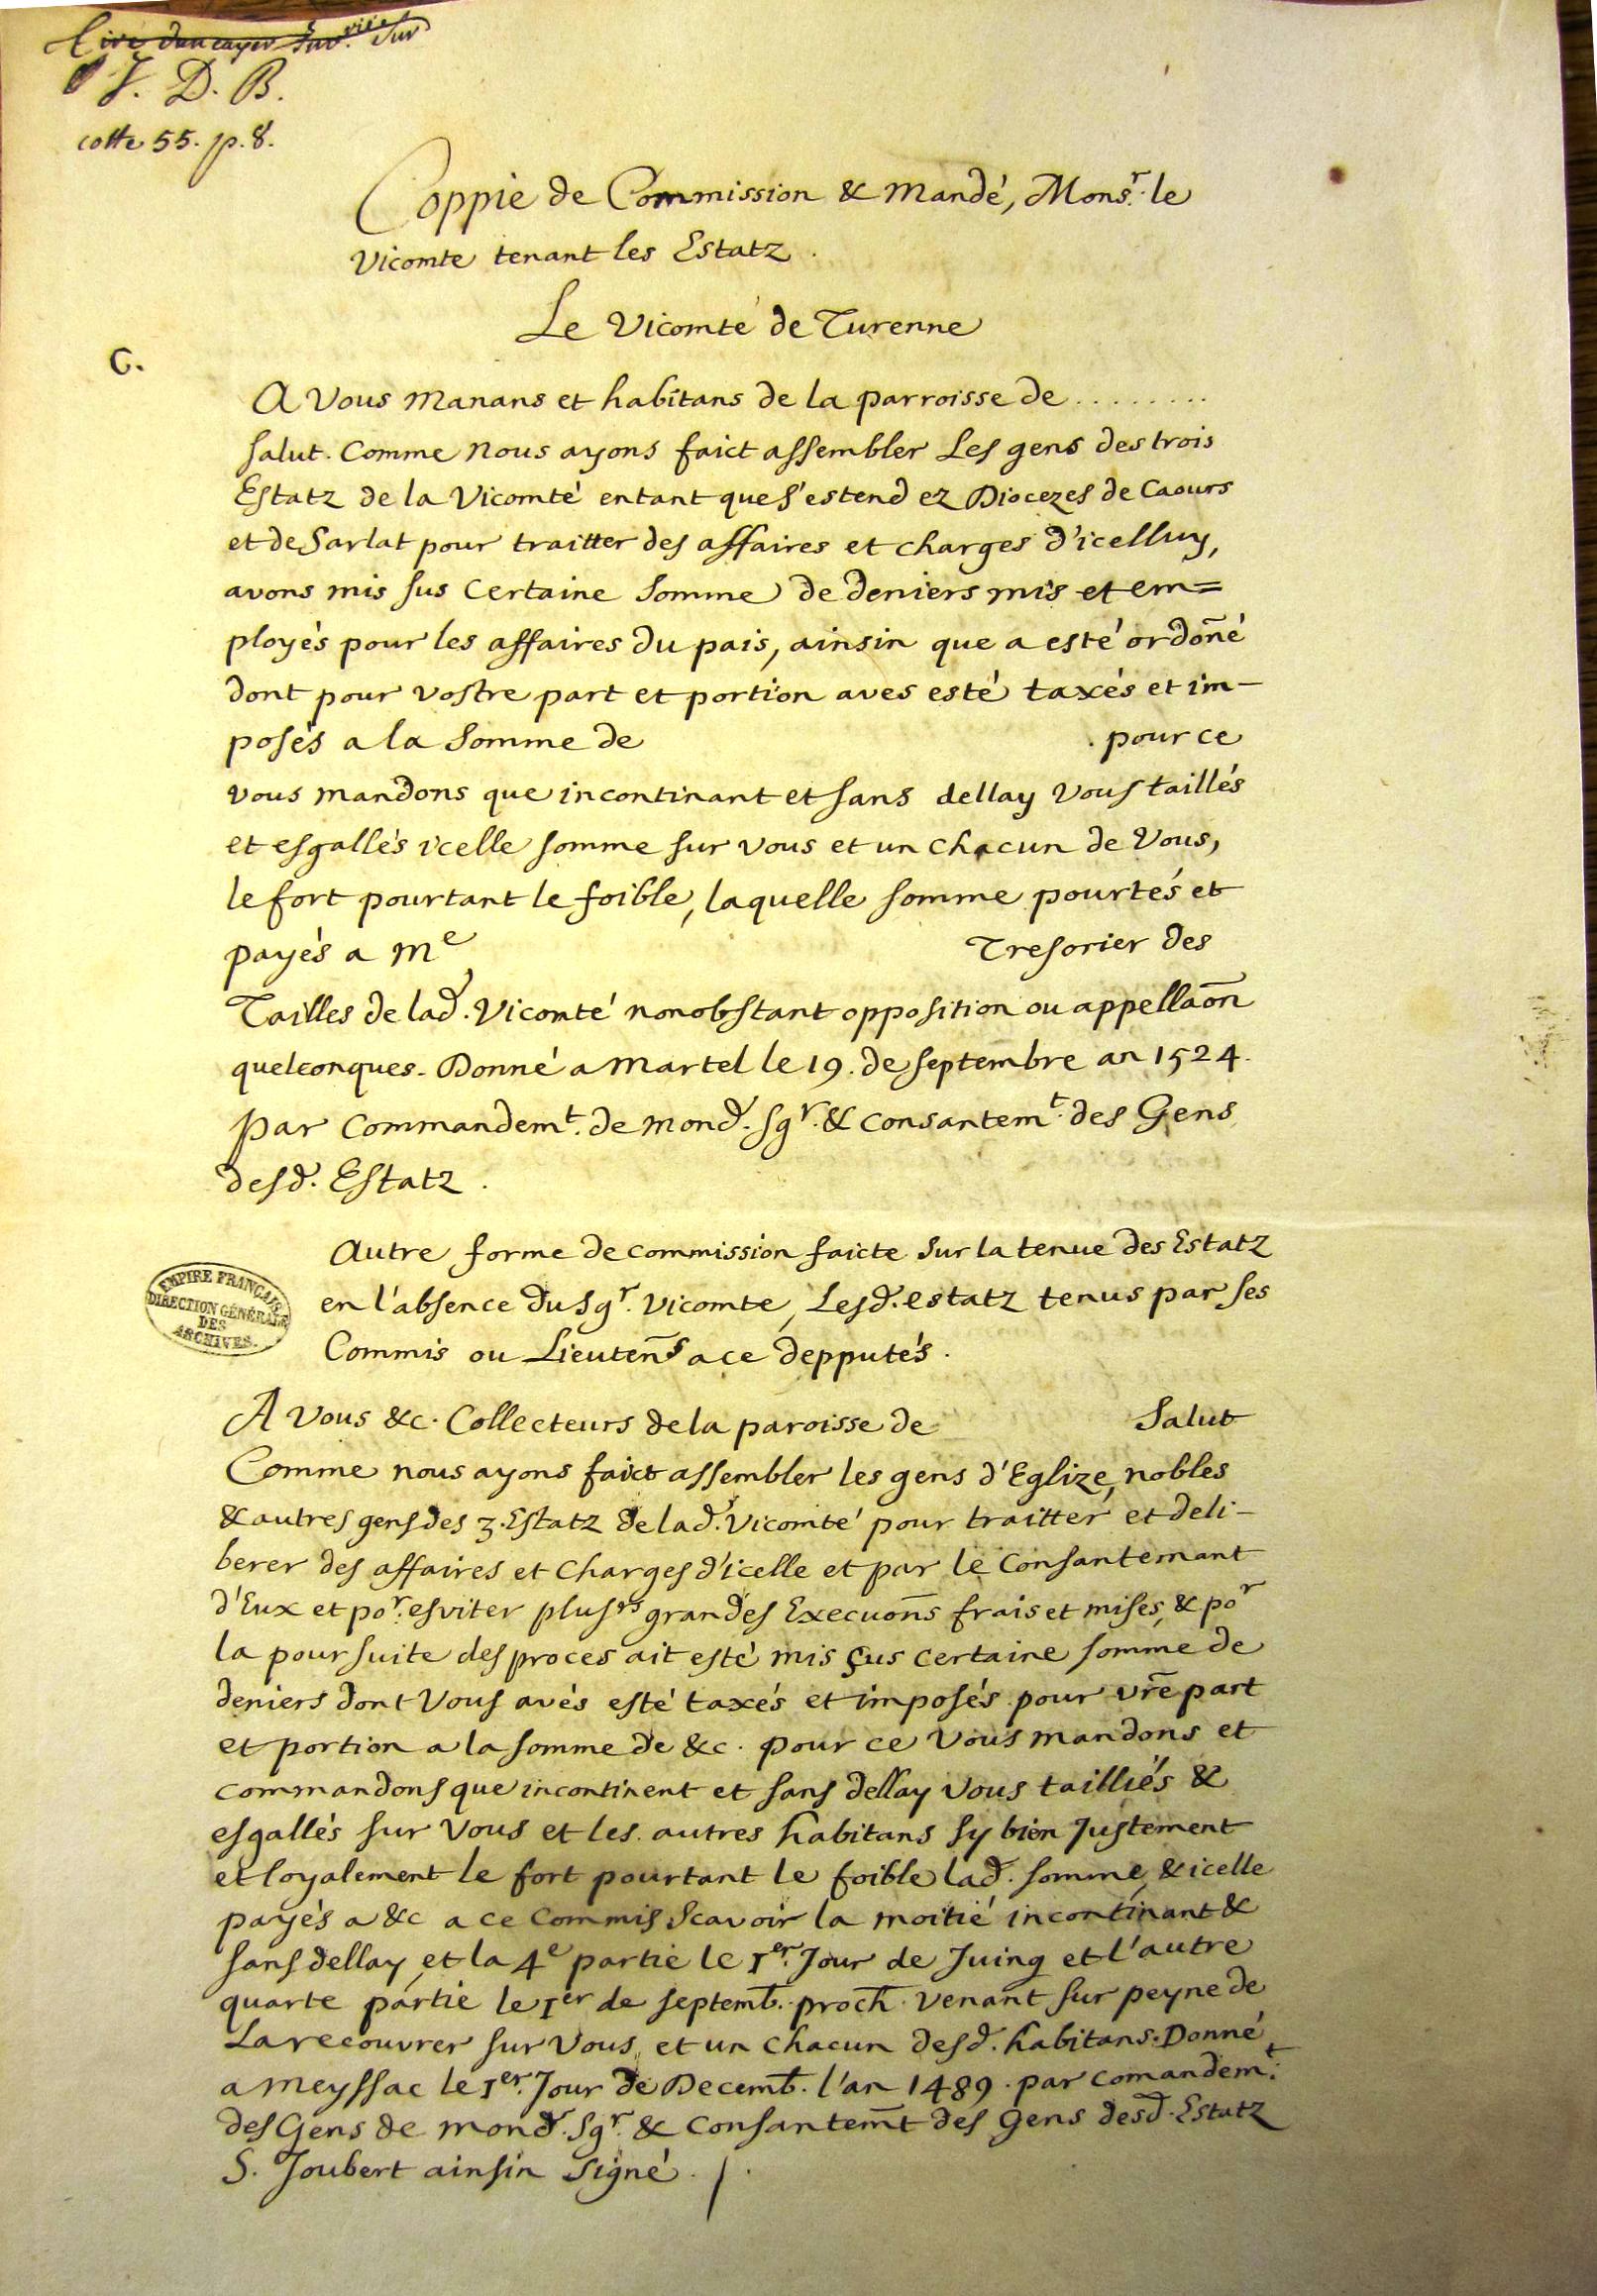 J. D. B.
cotte 55. p. 8.
Coppie de Commission & Mandé, Monsr. le
Vicomte tenant les Estatz.
Le Vicomte de Turenne
C.
A Vous Manans et habitans de la parroisse de ........
salut. Comme nous ayons faict assembler Les gens des trois
Estatz de la Vicomté entant que s'estend ez Diocezes de Caours
et de Sarlat pour traitter des affaires et charges d'icelluy,
avons mis sus Certaine somme de deniers mis et em=
ployés pour les affaires du pais, ainsin que a esté ordoñé
dont pour vostre part et portion aves esté taxés et im-
posés a la somme de . pour ce
vous mandons que incontinant et sans dellay vous taillés
et esgallés icelle somme sur vous et un chacun de Vous,
le fort pourtant le foible, laquelle somme pourtés et
payés a Me Tresorier des
Tailles de lad. Vicomté nonobstant opposition ou appellaõn
quelconques. Donné a Martel le 19. de septembre an 1524.
par Commandemt. de mond. sgr. & consantemt. des Gens
desd. Estatz.
Autre forme de commission faicte sur la tenue des Estatz
en l'absence du sgr. Vicomte, Lesd. estatz tenus par ses
Commis ou Lieuteñs a ce depputés.
EMPIRE FRANÇAIS
DIRECTION GÉNÉRALE
DES
ARCHIVES.
A Vous &c. Collecteurs de la paroisse de Salut
Comme nous ayons faict assembler les gens d'Eglize, nobles
& autres gens des 3. Estatz de lad. Vicomté pour traitter et deli-
berer des affaires et Charges d'icelle et par le Consantemant
d'Eux et por. esviter plusrs grandes Execuoñs frais et mises, & por
la poursuite des proces ait esté mis çus certaine somme de
deniers dont Vous avés esté taxés et imposés pour vr̃e part
et portion a la somme de &c. pour ce Vous mandons et
commandons que incontinent et sans dellay Vous tailliés &
esgallés sur Vous et les autres habitans sy bien Justement
et loyalement le fort pourtant le foible lad. somme, & icelle
payés a &c a ce commis scavoir la moitié incontinant &
sans dellay, et la 4e partie le 1er. Jour de Juing et l'autre
quarte partie le 1er de septemb. proch. venant sur peyne de
La recouvrer sur Vous, et un chacun desd. habitans. Donné
a Meyssac le 1er. Jour de Decemb. l'an 1489. par comandemt.
des Gens de mond. sgr. & Consantem̃t des gens desd. Estatz
S. Joubert ainsin signé.